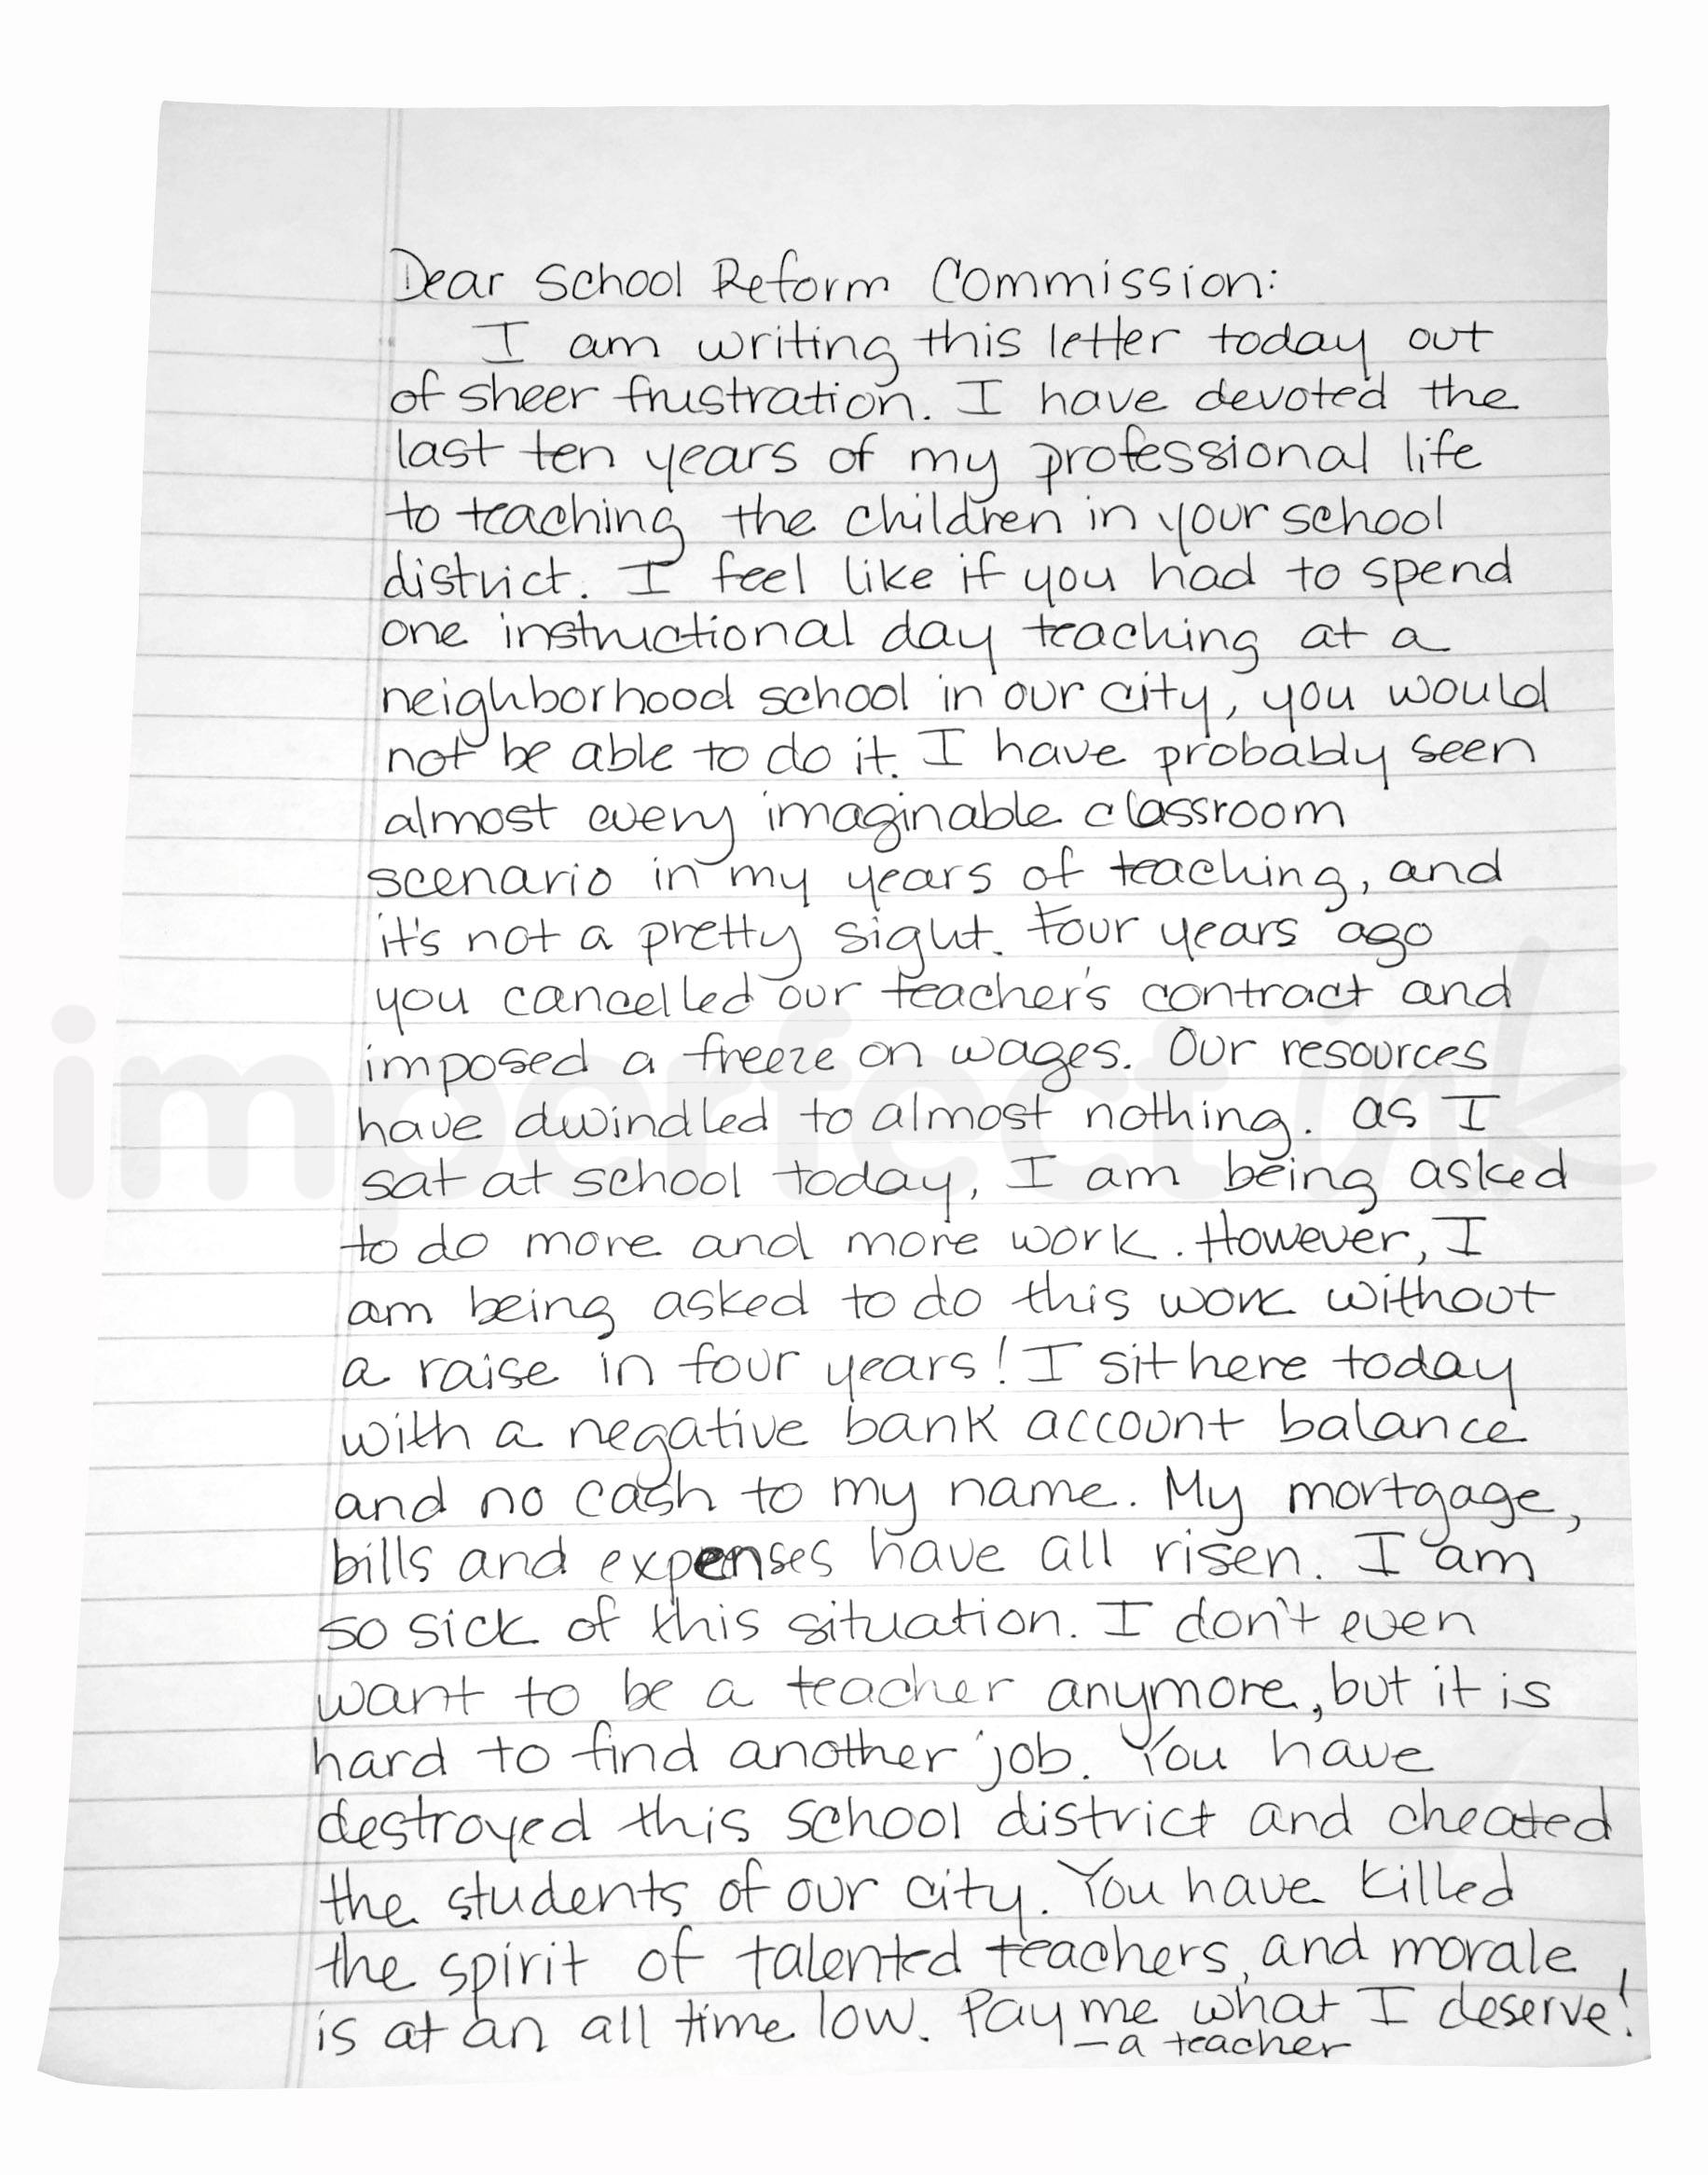 Dear School Reform Commission:
I am writing this letter today out
of sheer frustration. I have devoted the
last ten years of my professional life
to teaching the children in your school
district. I feel like if you had to spend
one instructional day teaching at a
neighborhood school in our city, you would
not be able to do it. I have probably seen
almost every imaginable classroom
scenario in my years of teaching, and
it's not a pretty sight. Four years ago
you cancelled our teacher's contract and
imposed a freeze on wages. Our resources
have dwindled to almost nothing. as I
sat at school today, I am being asked
to do more and more work. However, I
am being asked to do this work without
a raise in four years! I sit here today
with a negative bank account balance
and no cash to my name. My mortgage,
bills and expenses have all risen. I am
so sick of this situation. I don't even
want to be a teacher anymore, but it is
hard to find another job. You have
destroyed this school district and cheated
the students of our city. You have killed
the spirit of talented teachers, and morale
is at an all time low. Pay me what I deserve!
— a teacher
imperfect ink